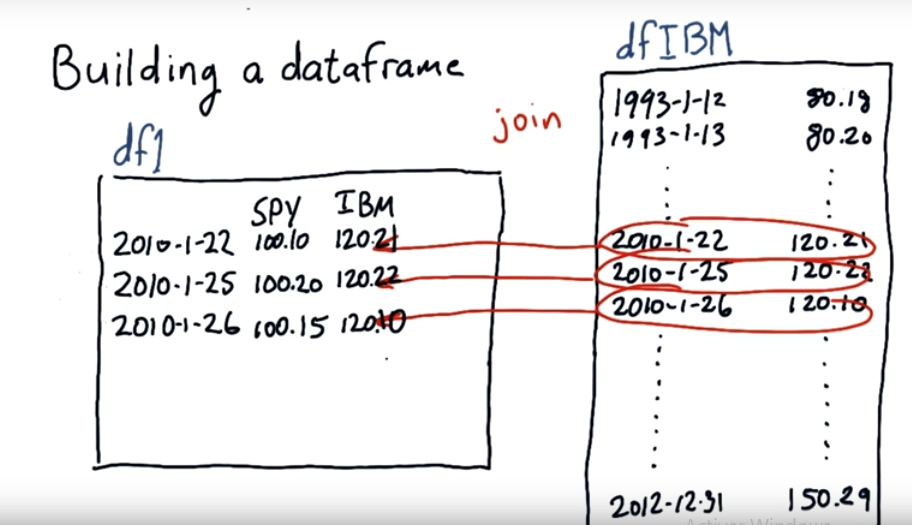 Building a dataframe
df1
SPY IBM
2010-1-22 100.10 120.21
2010-1-25 100.20 120.22
2010-1-26 100.15 120.10
join
dfIBM
1993-1-12 80.18
1993-1-13 80.20
2010-1-22 120.21
2010-1-25 120.22
2010-1-26 120.10
2012-12-31 150.29